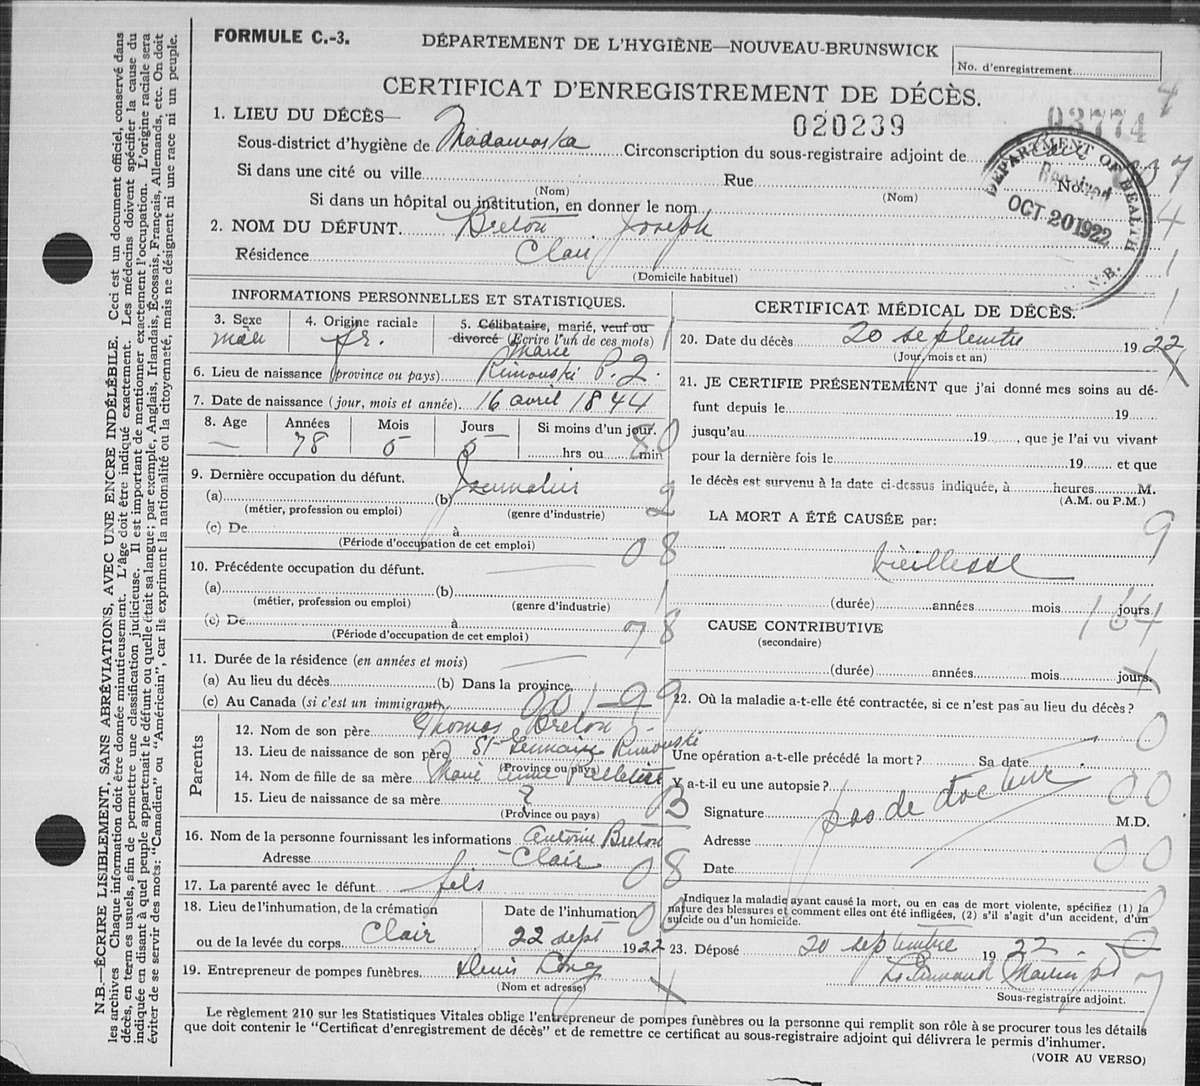 FORMULE C.-3.
DÉPARTEMENT DE L'HYGIÈNE—NOUVEAU-BRUNSWICK
No. d'enregistrement
CERTIFICAT D'ENREGISTREMENT DE DÉCÈS.
020239
03774
1. LIEU DU DÉCÈS—
Sous-district d'hygiène de Madawaska Circonscription du sous-registraire adjoint de
Si dans une cité ou ville Rue No.
(Nom) (Nom)
Si dans un hôpital ou institution, en donner le nom
DEPARTMENT OF HEALTH
Received
OCT 20 1922
N.B.
2. NOM DU DÉFUNT. Breton Joseph
Résidence Clair
(Domicile habituel)
INFORMATIONS PERSONNELLES ET STATISTIQUES.
3. Sexe 4. Origine raciale 5. Célibataire, marié, veuf ou
divorcé (Ecrire l'un de ces mots)
fr. Marié
6. Lieu de naissance (province ou pays) Rimouski P.Q.
7. Date de naissance (jour, mois et année). 16 avril 1844
8. Age Années Mois Jours Si moins d'un jour.
— 78 5 5 hrs ou min
9. Dernière occupation du défunt. Journalier
(a) (b)
(métier, profession ou emploi) (genre d'industrie)
(c) De à
(Période d'occupation de cet emploi)
10. Précédente occupation du défunt.
(a) (b)
(métier, profession ou emploi) (genre d'industrie)
(c) De à
(Période d'occupation de cet emploi)
11. Durée de la résidence (en années et mois)
(a) Au lieu du décès (b) Dans la province
(c) Au Canada (si c'est un immigrant)
Parents
12. Nom de son père Thomas Breton
13. Lieu de naissance de son père Rimouski
(Province ou pays)
14. Nom de fille de sa mère Marie Pelletier
15. Lieu de naissance de sa mère ?
(Province ou pays)
16. Nom de la personne fournissant les informations Antoine Breton
Adresse Clair
17. La parenté avec le défunt fils
18. Lieu de l'inhumation, de la crémation Date de l'inhumation
ou de la levée du corps. Clair 22 sept 1922
19. Entrepreneur de pompes funèbres Denis Long
(Nom et adresse)
CERTIFICAT MÉDICAL DE DÉCÈS.
20. Date du décès 20 septembre 1922
(Jour, mois et an)
21. JE CERTIFIE PRÉSENTEMENT que j'ai donné mes soins au dé-
funt depuis le 19
jusqu'au 19 , que je l'ai vu vivant
pour la dernière fois le 19 et que
le décès est survenu à la date ci-dessus indiquée, à heures M.
(A.M. ou P.M.)
LA MORT A ÉTÉ CAUSÉE par:
Vieillesse
(durée) années mois jours
CAUSE CONTRIBUTIVE
(secondaire)
(durée) années mois jours.
22. Où la maladie a-t-elle été contractée, si ce n'est pas au lieu du décès?
Une opération a-t-elle précédé la mort? Sa date
Y a-t-il eu une autopsie?
Signature pas de docteur M.D.
Adresse
Date
Indiquez la maladie ayant causé la mort, ou en cas de mort violente, spécifiez (1) la
nature des blessures et comment elles ont été infligées, (2) s'il s'agit d'un accident, d'un
suicide ou d'un homicide.
23. Déposé 20 septembre 1922
Martin
Sous-registraire adjoint.
Le règlement 210 sur les Statistiques Vitales oblige l'entrepreneur de pompes funèbres ou la personne qui remplit son rôle à se procurer tous les détails
que doit contenir le "Certificat d'enregistrement de décès" et de remettre ce certificat au sous-registraire adjoint qui délivrera le permis d'inhumer.
(VOIR AU VERSO)
N.B.—ÉCRIRE LISIBLEMENT, SANS ABRÉVIATIONS, AVEC UNE ENCRE INDÉLÉBILE. Ceci est un document officiel, conservé dans
les archives Chaque information doit être donnée minutieusement. L'âge doit être indiqué exactement. Les médecins doivent spécifier la cause du
décès, en termes usuels, afin de permettre une classification judicieuse. Il est important de mentionner exactement l'occupation. L'origine raciale sera
indiquée en disant à quel peuple appartenait le défunt ou quelle était sa langue; par exemple, Anglais, Irlandais, Ecossais, Français, Allemands, etc. On doit
éviter de se servir des mots: "Canadien" ou "Américain", car ils expriment la nationalité ou la citoyenneté, mais ne désignent ni une race ni un peuple.